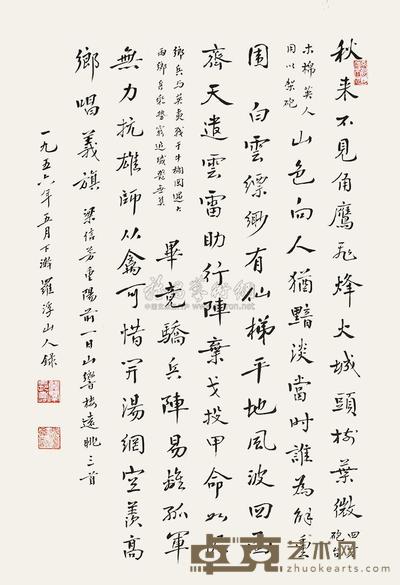 秋来不見角鷹飛烽火城頭樹葉微四砲台
木棉英人
用以架砲
山色向人猶黯淡當時誰為解重
圍白雲縹緲有仙梯平地風波回
齊天遣雲雷助行陣棄戈投甲命如
鄉兵与英夷戰于牛欄岡遇大
雨鄉兵乘勢窮追
畢竟驕兵陣易離孤軍
無力抗雄師从禽可惜開湯網空羨高
鄉唱義旗 梁信芳重陽前一日山響楼遠眺三首
一九五六年五月下澣羅浮山人錄
卓克艺术网
www.zhuokearts.com